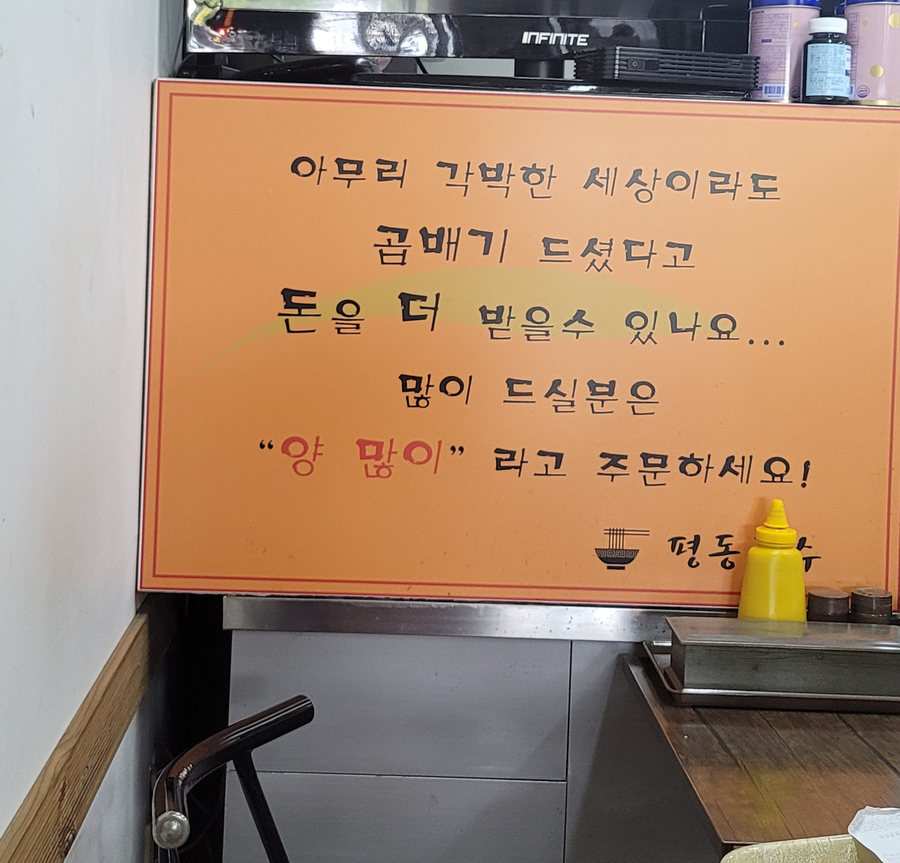 INFINITE
아무리 각박한 세상이라도
곱배기 드셨다고
돈을 더 받을수 있나요...
많이 드실분은
“양 많이” 라고 주문하세요!
평동